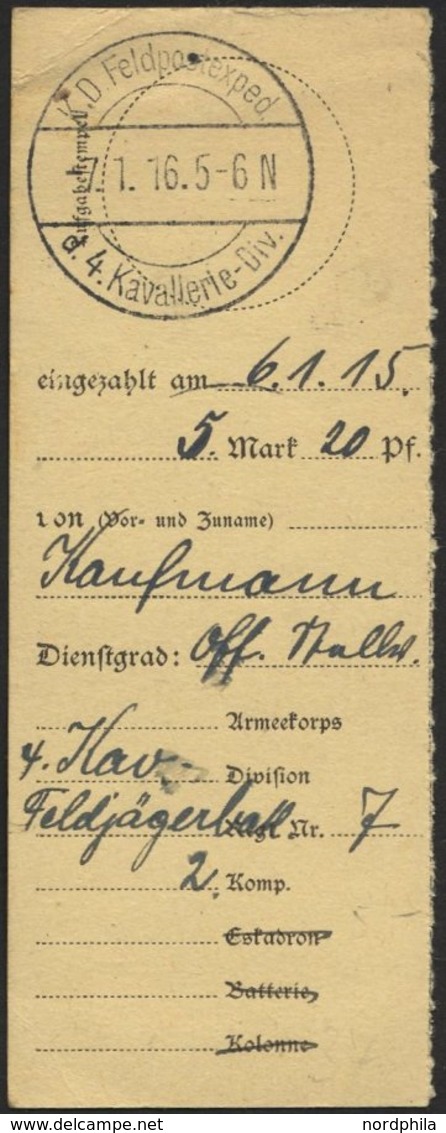 K.D Feldpostexped.
Aufgabestempel
7.1.16.5-6 N
d. 4. Kavallerie-Div.
eingezahlt am 6.1.15.
5. Mark 20 Pf.
von (Vor- und Zuname)
Kaufmann
Dienstgrad: Off. Stellv.
Armeekorps
4. Kav. Division
Feldjägerbatl. Nr. 7
2. Komp.
Eskadron
Batterie
Kolonne
nordphila